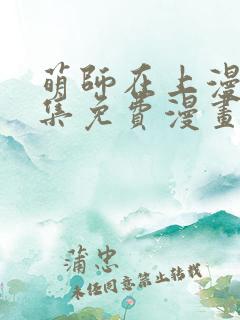 萌師在上漫
集免費漫畫
蒲忠
未经同意禁止转载